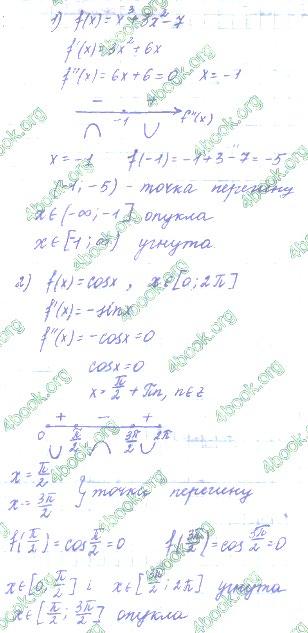 1) f(x)=x³+3x²-7
f'(x)=3x²+6x
f''(x)=6x+6=0 x=-1
- +
-1 f''(x)
x=-1 f(-1)=-1+3-7=-5
(-1,-5) - точка перегину
x∈(-∞,-1] опукла
x∈[-1;∞) угнута
2) f(x)=cosx, x∈[0;2π]
f'(x)=-sinx
f''(x)=-cosx=0
cosx=0
x=π/2+πn, n∈z
+ - +
0 π/2 3π/2 2π
x=π/2
x=3π/2 } точки перегину
f(π/2)=cos π/2=0 f(3π/2)=cos 3π/2=0
x∈[0,π/2] і x∈[3π/2;2π] угнута
x∈[π/2;3π/2] опукла
4book.org